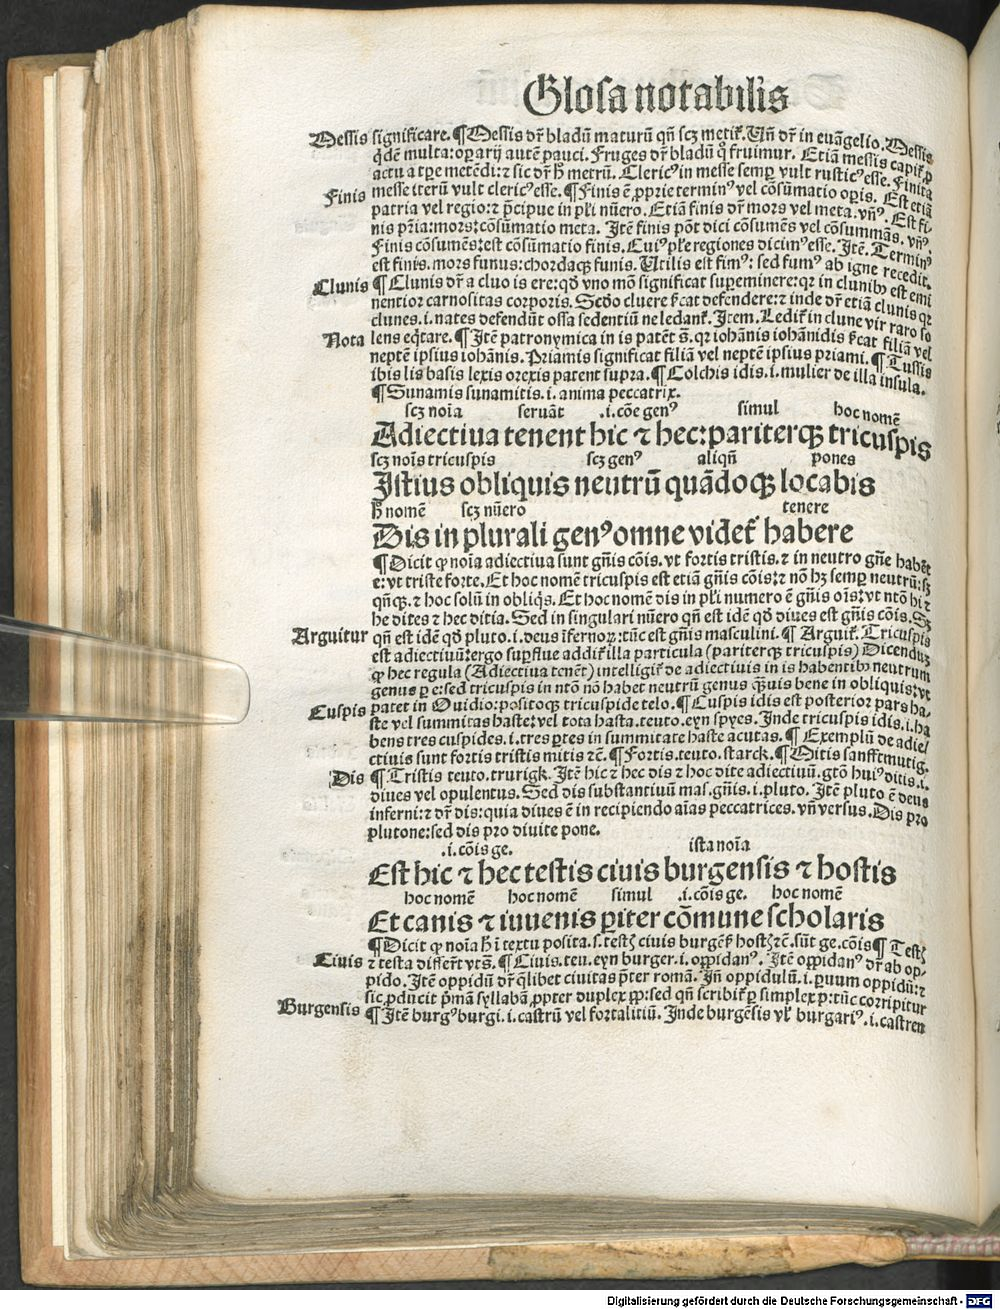 Glosa notabilis
Messis significare. ¶ Messis dr̄ bladū maturū qn̄ scꝫ metit᷑. Vn̄ dr̄ in euāgelio. Messis
q̇dē multa: oꝑarij autē pauci. Fruges dr̄ bladū qͦ fruimur. Etiā messis capit᷑ ꝓ
actu a tꝑe metēdi: ⁊ sic dr̄ h̄ metrū. Clericꝰ in messe semꝑ vult rusticꝰ esse. Finita
Finis messe iterū vult clericꝰ esse. ¶ Finis ē ꝓprie terminꝰ vel cōsūmatio oꝑis. Est etiā
patria vel regio: ⁊ p̄cipue in pl̄i nūero. Etiā finis dr̄ mors vel meta. vn̄ꝰ. Est fi-
nis pr̄ia: mors: cōsūmatio meta. Itē finis pōt dici cōsumēs vel cōsummās. vn̄ꝰ.
Finis cōsumēs: est cōsūmatio finis. Cuiꝰ pl̄e regiones dicimꝰ esse. Itē. Terminꝰ
est finis. mors funus: chordaqꝫ funis. Utilis est fimꝰ: sed fumꝰ ab igne recedit.
Clunis ¶ Clunis dr̄ a cluo is ere: qd̄ vno mō significat suꝑeminere: qꝛ in clunibꝰ est emi
nentior carnositas corporis. Scd̄o cluere s̄cat defendere: ⁊ inde dr̄ etiā clunis qꝛ
clunes. i. nates defendūt ossa sedentiū ne ledant᷑. Item. Ledit᷑ in clune vir raro so
Nota lens eq̇tare. ¶ Itē patronymica in is patēt s. qꝛ iohānis iohānidis s̄cat filiā vel
neptē ipsius iohānis. Priamis significat filiā vel neptē ipsius priami. ¶ Tussis
ibis lis basis lexis orexis patent supra. ¶ Colchis idis. i. mulier de illa insula.
¶ Sunamis sunamitis. i. anima peccatrix.
scꝫ noīa seruāt .i. cōe genꝰ simul hoc nomē
Adiectiua tenent hic ⁊ hec: pariterqꝫ tricuspis
scꝫ noīs tricuspis scꝫ genꝰ aliqn̄ pones
Istius obliquis neutrū quādoqꝫ locabis
h̄ nomē scꝫ nūero tenere
Dis in plurali genꝰ omne videt᷑ habere
¶ Dicit ꝙ noīa adiectiua sunt gn̄is cōis. vt fortis tristis. ⁊ in neutro gn̄e habēt
e: vt triste forte. Et hoc nomē tricuspis est etiā gn̄is cōis: ⁊ nō hꝫ semꝑ neutrū: sꝫ
qn̄qꝫ. ⁊ hoc solū in obliq̇s. Et hoc nomē dis in pl̄i numero ē gn̄is oīs: vt ntō hi ⁊
he dites ⁊ hec ditia. Sed in singulari nūero qn̄ est idē qd̄ diues est gn̄is cōis. Sꝫ
Arguitur qn̄ est idē qd̄ pluto. i. deus īfernoꝝ: tūc est gn̄is masculini. ¶ Arguit᷑. Tricuspis
est adiectiuū: ergo suꝑflue addit᷑ illa particula (pariterqꝫ tricuspis) Dicendūꝫ
ꝙ hec regula (Adiectiua tenēt) intelligit᷑ de adiectiuis in is habentibꝰ neutrum
genus ꝑ e: sed tricuspis in ntō nō habet neutrū genus qꝫuis bene in obliquis: vt
Cuspis patet in Ouidio: positoqꝫ tricuspide telo. ¶ Cuspis idis est posterior pars ha-
ste vel summitas haste: vel tota hasta. teuto. eyn spyes. Inde tricuspis idis. i. ha
bens tres cuspides. i. tres ꝑtes in summitate haste acutas. ¶ Exemplū de adie/
ctiuis sunt fortis tristis mitis ⁊c̄. ¶ Fortis. teuto. starck. ¶ Mitis sanfftmutig.
Dis ¶ Tristis teuto. trurigk. Itē hic ⁊ hec dis ⁊ hoc dite adiectiuū. gtō huiꝰ ditis. i.
diues vel opulentus. Sed dis substantiuū mas. gn̄is. i. pluto. Itē pluto ē deus
inferni: ⁊ dr̄ dis: quia diues ē in recipiendo aīas peccatrices. vn̄ versus. Dis pro
plutone: sed dis pro diuite pone.
.i. cōis ge. ista noīa
Est hic ⁊ hec testis ciuis burgensis ⁊ hostis
hoc nomē hoc nomē simul .i. cōis ge. hoc nomē
Et canis ⁊ iuuenis ꝑiter cōmune scholaris
¶ Dicit ꝙ noīa h̄ ī textu posita. s. testꝭ ciuis burgēs̄ hostꝭ ⁊c̄. sūt ge. cōis ¶ Testꝭ
Ciuis ⁊ testa differt vt s̄. ¶ Ciuis. teu. eyn burger. i. oppidanꝰ. Itē oppidanꝰ dr̄ ab op-
pido. Itē oppidū dr̄ q̄libet ciuitas p̄ter romā. In̄ oppidulū. i. ꝑuum oppidū: ⁊
sic ꝓducit p̄mā syllabā ꝓpter duplex pp: sed qn̄ scribit᷑ ꝑ simplex p: tūc corripitur
Burgensis ¶ Itē burgꝰ burgi. i. castrū vel fortalitiū. Inde burgēsis vl̓ burgariꝰ. i. castren
Digitalisierung gefördert durch die Deutsche Forschungsgemeinschaft - DFG